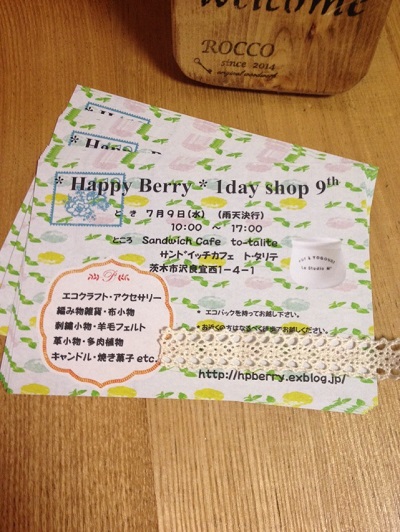 welcome
ROCCO
since 2014
* Happy
* Happy Be
* Happy Berry * 1day shop 9th
とき 7月9日(水) (雨天決行)
10:00 ～ 17:00
ところ Sandwich Cafe to-ta-lite
サンドイッチカフェ トータリテ
茨木市沢良宜西1-4-1
エコクラフト・アクセサリー
編み物雑貨・布小物
刺繍小物・羊毛フェルト
革小物・多肉植物
キャンドル・焼き菓子 etc
* エコバックを持ってお越し下さい。
http://hpberry.exblog.jp/